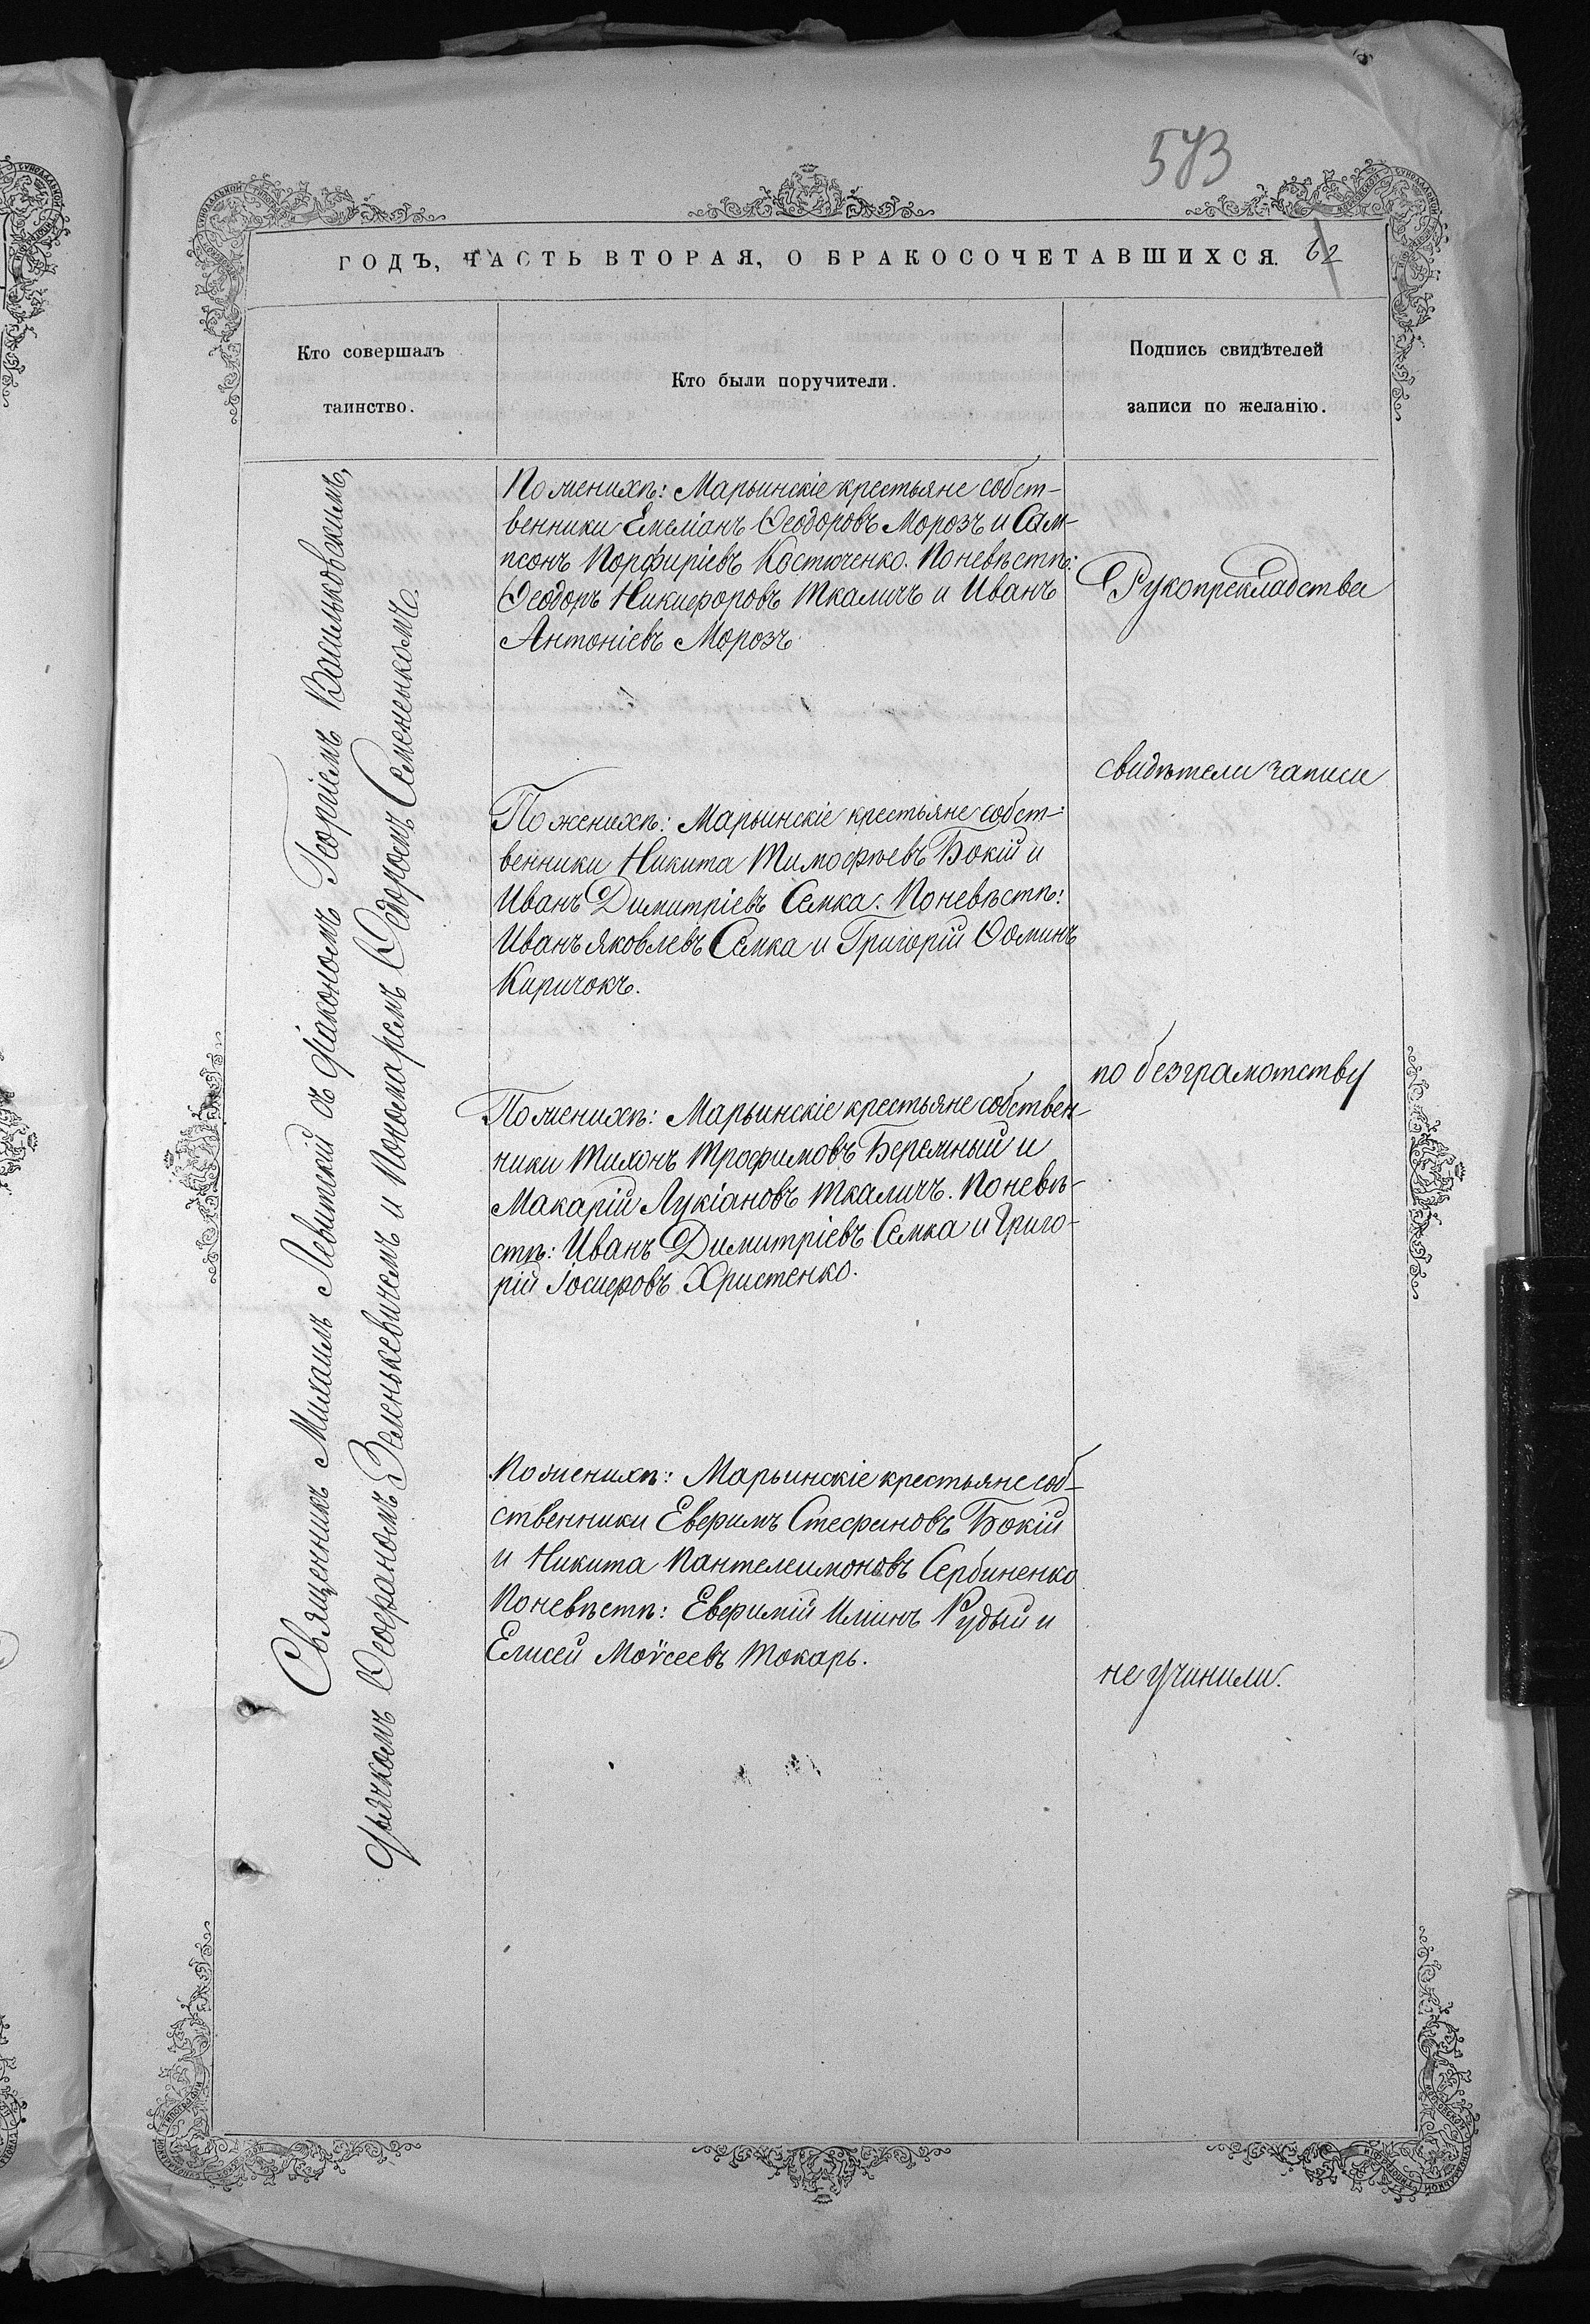 573
ГОДЪ, ЧАСТЬ ВТОРАЯ, О БРАКОСОЧЕТАВШИХСЯ. 62
Кто совершалъ
таинство.
Кто были поручители.
Подпись свидѣтелей
записи по желанію.
Священникъ Михаилъ Левитскій съ діакономъ Георгіемъ Васильковскимъ,
дьячкомъ Ѳеофаномъ Зеленькевичемъ и пономаремъ Ѳедоромъ Семененкомъ.
По женихѣ: Марьинскіе крестьяне собст-
венники Емеліанъ Ѳеодоровъ Морозъ и Сам-
псонъ Порфиріевъ Костюченко. По невѣстѣ:
Ѳеодоръ Никифоровъ Ткаличъ и Иванъ
Антоніевъ Морозъ
По женихѣ: Марьинскіе крестьяне собст-
венники Никита Тимофѣевъ Бокій и
Иванъ Димитріевъ Семка. По невѣстѣ:
Иванъ Яковлевъ Семка и Григорій Ѳоминъ
Киричокъ.
По женихѣ: Марьинскіе крестьяне собствен-
ники Тихонъ Трофимовъ Беремный и
Макарій Лукіановъ Ткаличъ. По невѣ-
стѣ: Иванъ Димитріевъ Семка и Григо-
рій Іосифовъ Христенко.
По женихѣ: Марьинскіе крестьяне соб-
ственники Евфимъ Стефановъ Бокій
и Никита Пантелеимоновъ Сербиненко
По невѣстѣ: Евфимій Иліинъ Рудый и
Елисей Моѵсеевъ Токарь.
Рукоприкладства
свидѣтели записи
по безграмотству
не учинили.